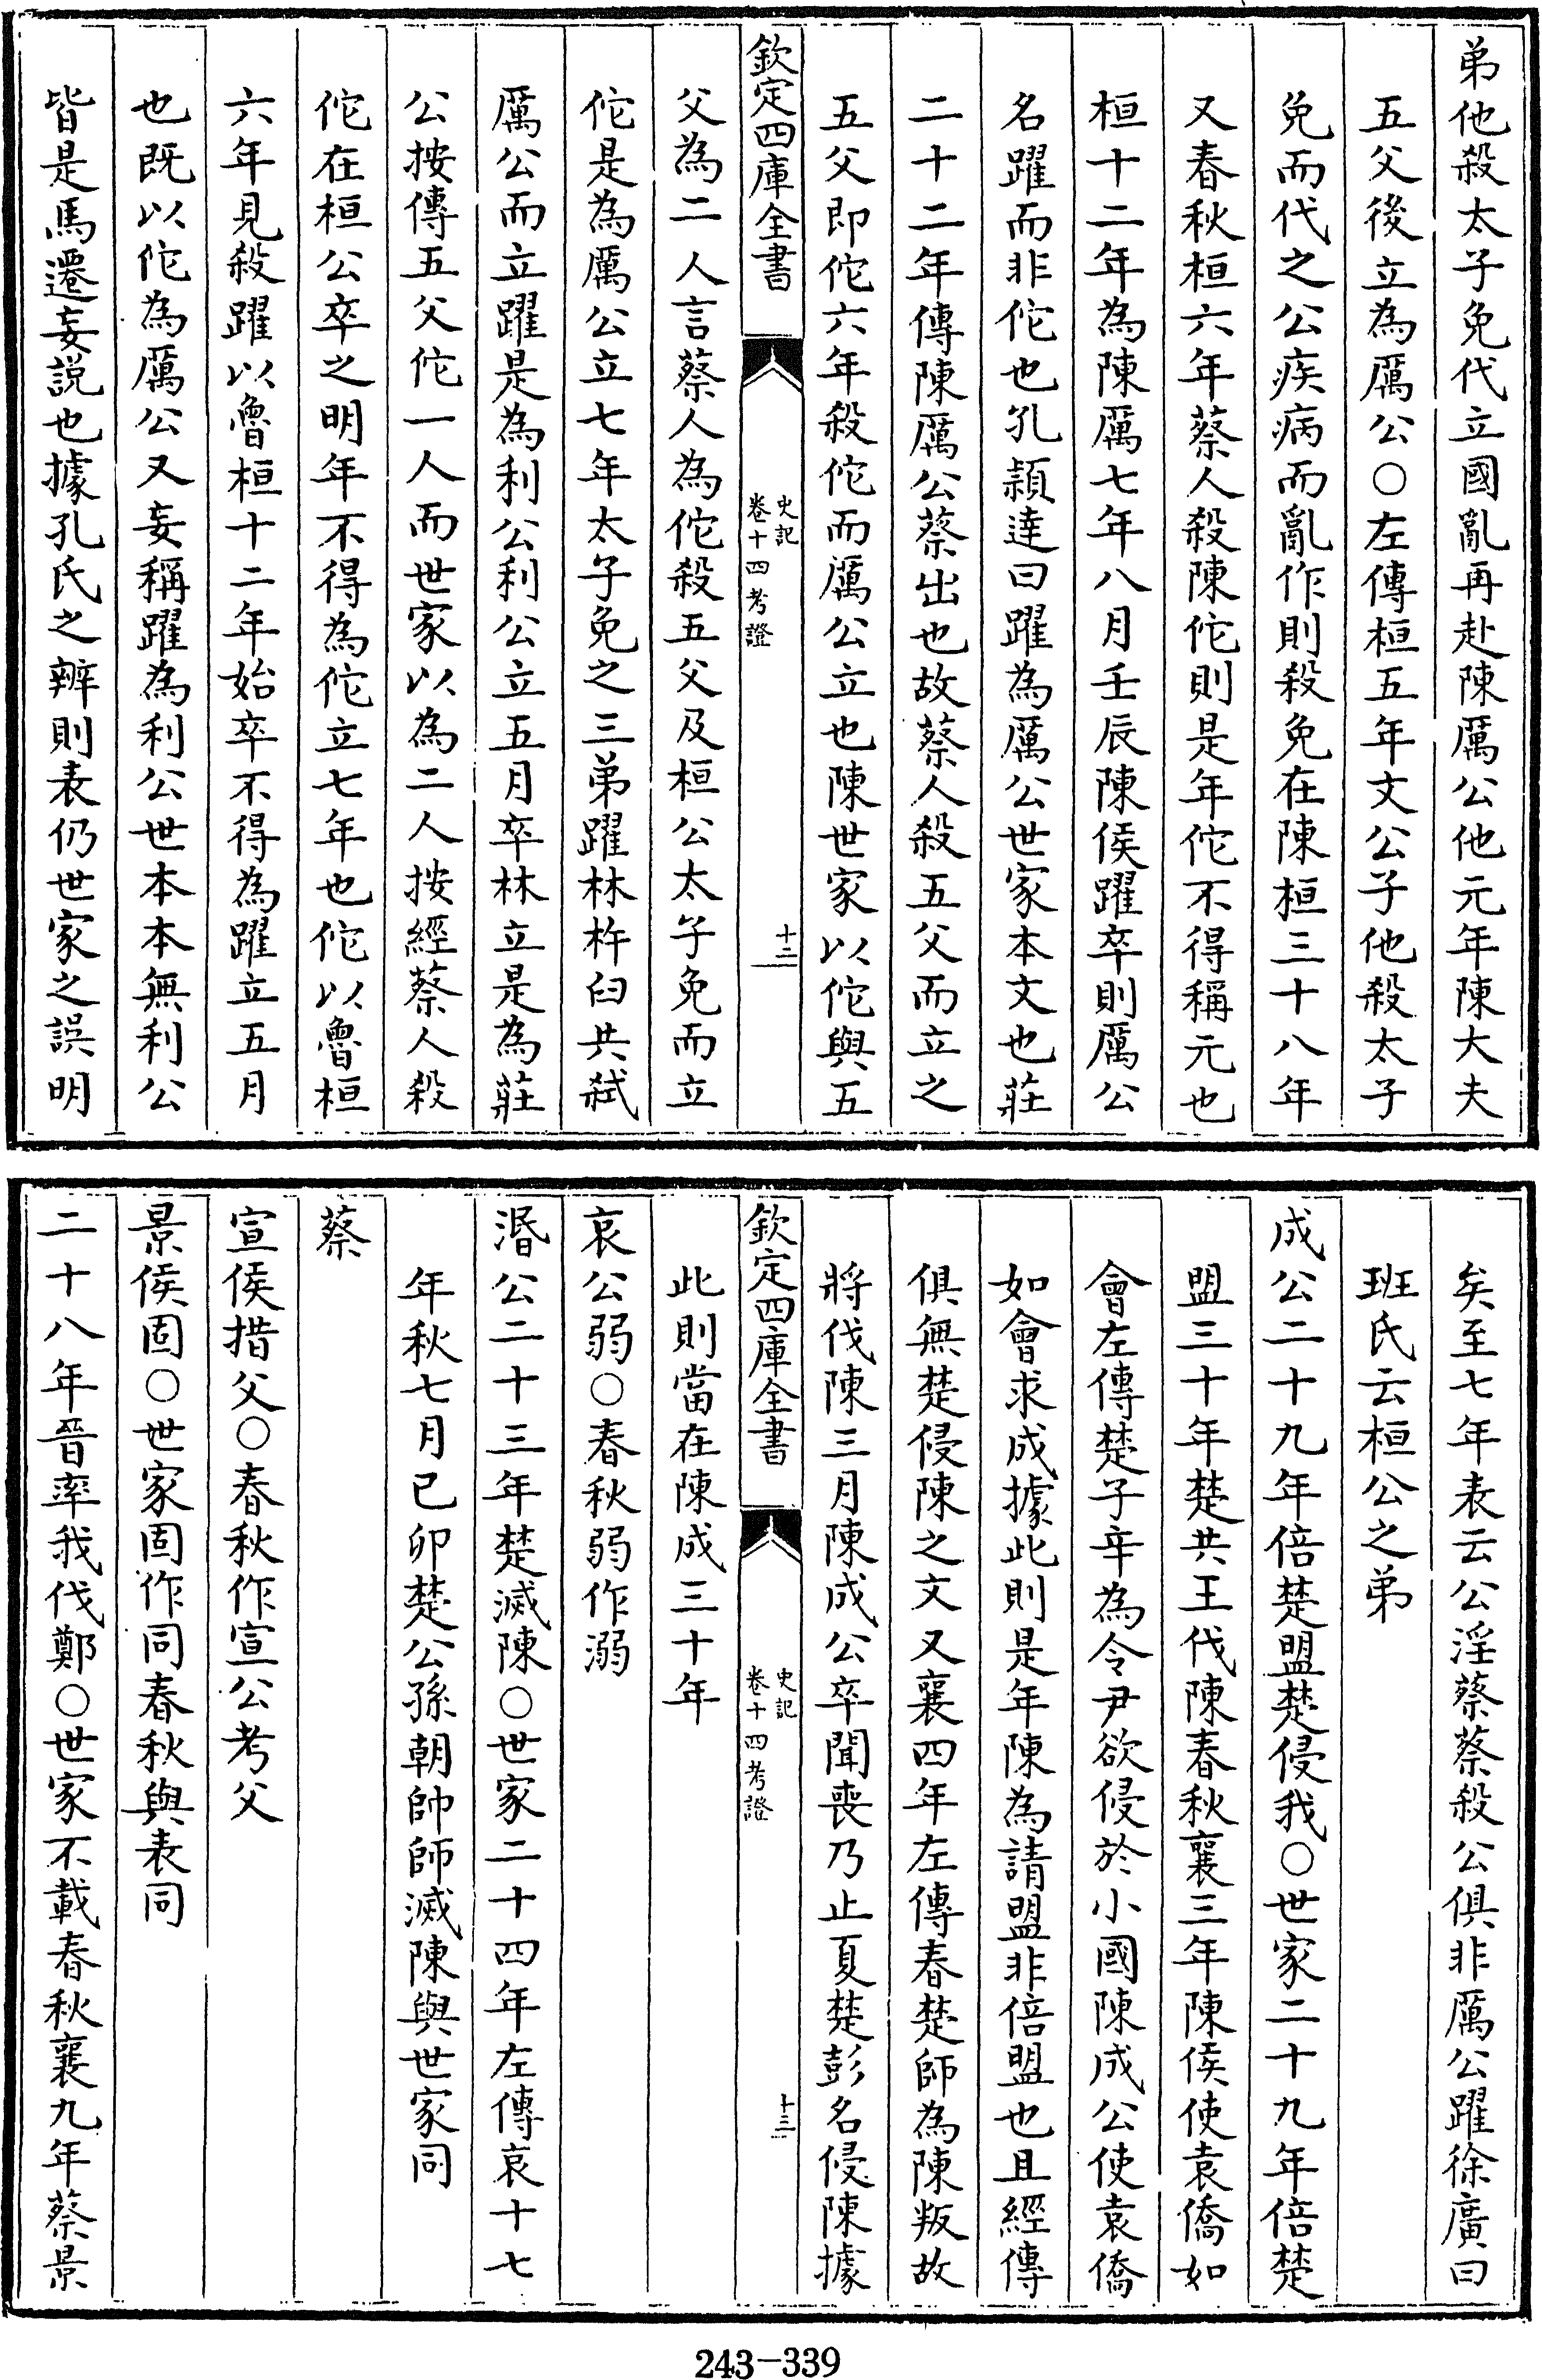 弟他殺太子免代立國亂再赴陳厲公他元年陳大夫
五父後立為厲公○左傳桓五年文公子他殺太子
免而代之公疾病而亂作則殺免在陳桓三十八年
又春秋桓六年蔡人殺陳佗則是年佗不得稱元也
桓十二年為陳厲七年八月壬辰陳侯躍卒則厲公
名躍而非佗也孔頴達曰躍為厲公世家本文也莊
二十二年傳陳厲公蔡出也故蔡人殺五父而立之
五父即佗六年殺佗而厲公立也陳世家以佗與五
欽定四庫全書
史記
卷十四考證
十二
父為二人言蔡人為佗殺五父及桓公太子免而立
佗是為厲公立七年太子免之三弟躍林杵臼共弑
厲公而立躍是為利公利公立五月卒林立是為莊
公按傳五父佗一人而世家以為二人按經蔡人殺
佗在桓公卒之明年不得為佗立七年也佗以魯桓
六年見殺躍以魯桓十二年始卒不得為躍立五月
也既以佗為厲公又妄稱躍為利公世本本無利公
皆是馬遷妄説也據孔氏之辨則表仍世家之誤明
矣至七年表云公淫蔡蔡殺公俱非厲公躍徐廣曰
班氏云桓公之弟
成公二十九年倍楚盟楚侵我○世家二十九年倍楚
盟三十年楚共王伐陳春秋襄三年陳侯使袁僑如
會左傳楚子辛為令尹欲侵於小國陳成公使袁僑
如會求成據此則是年陳為請盟非倍盟也且經傳
俱無楚侵陳之文又襄四年左傳春楚師為陳叛故
將伐陳三月陳成公卒聞喪乃止夏楚彭名侵陳據
欽定四庫全書
史記
卷十四考證
十三
此則當在陳成三十年
哀公弱○春秋弱作溺
湣公二十三年楚滅陳○世家二十四年左傳哀十七
年秋七月已卯楚公孫朝帥師滅陳與世家同
蔡
宣侯措父○春秋作宣公考父
景侯固○世家固作同春秋與表同
二十八年晉率我伐鄭○世家不載春秋襄九年蔡景
243-339